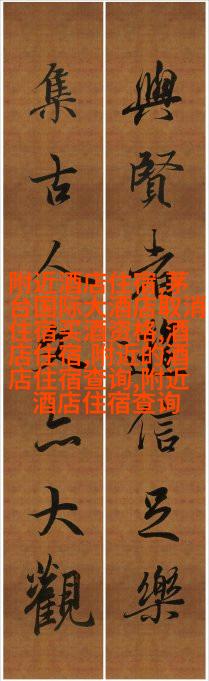 與賢者信足樂
集古人亦大觀
附近酒店住宿,茅
台国际大酒店取消
住宿买酒资格,酒
店住宿,附近的酒
店住宿查询,附近
酒店住宿查询